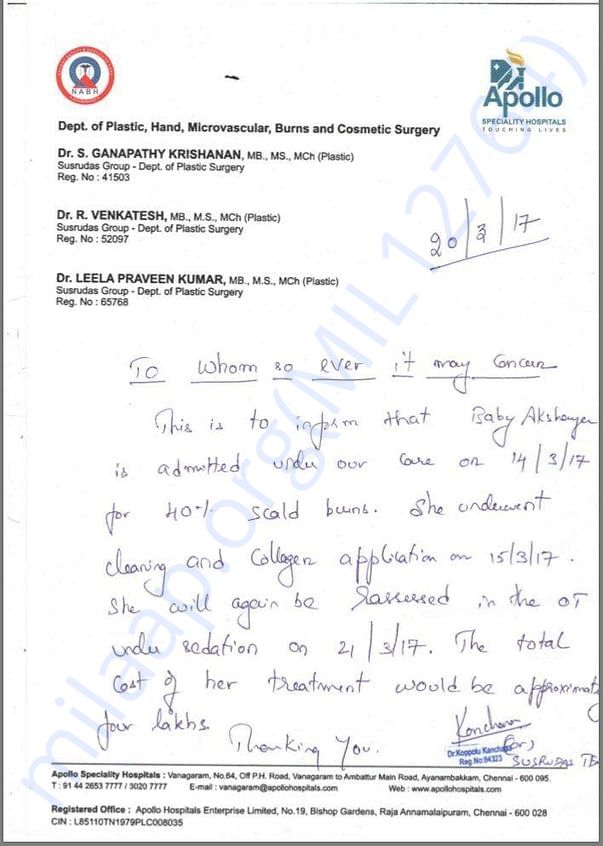 NABH
Apollo
SPECIALITY HOSPITALS
TOUCHING LIVES
Dept. of Plastic, Hand, Microvascular, Burns and Cosmetic Surgery
Dr. S. GANAPATHY KRISHANAN, MB., MS., MCh (Plastic)
Susrudas Group - Dept. of Plastic Surgery
Reg. No : 41503
Dr. R. VENKATESH, MB., M.S., MCh (Plastic)
Susrudas Group - Dept. of Plastic Surgery
Reg. No : 52097
20/3/17
Dr. LEELA PRAVEEN KUMAR, MB., M.S., MCh (Plastic)
Susrudas Group - Dept. of Plastic Surgery
Reg. No : 65768
To whom so ever it may concern
This is to inform that Baby Akshaya
is admitted under our care on 14/3/17
for 40% scald burns. She underwent
cleaning and Collagen application on 15/3/17.
She will again be reassessed in the OT
under sedation on 21/3/17. The total
cost of her treatment would be approximately
four lakhs.
Thanking You.
Kanchana
Dr. Koppolu Kanchana
Reg.No:94323
SUSRUDAS TE
Apollo Speciality Hospitals : Vanagaram, No.64, Off P.H. Road, Vanagaram to Ambattur Main Road, Ayanambakkam, Chennai - 600 095.
T : 91 44 2653 7777 / 3020 7777 E-mail : vanagaram@apollohospitals.com Web : www.apollohospitals.com
Registered Office : Apollo Hospitals Enterprise Limited, No.19, Bishop Gardens, Raja Annamalaipuram, Chennai - 600 028
CIN : L85110TN1979PLC008035
milaap.org(MIL12764)